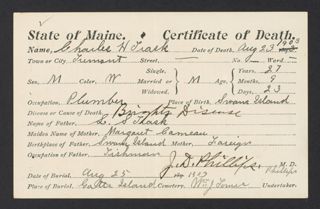 State of Maine. Certificate of Death.
Name, Charles H Trask Date of Death, Aug 23 1903
Town or City Tremont Street, — No. Ward —
Single, Years, 37
Sex, M Color, W Married or M Age, Months, 9
Widowed. Days, 23
Occupation, Plumber Place of Birth, Swans Island
Disease or Cause of Death, Brights Disease
Name of Father, S Trask
Maiden Name of Mother, Margaret
Birthplace of Father Swans Island Mother, Foreign
Occupation of Father, Fisherman
J.D. Phillips M. D.
Phillips
Date of Burial, Aug 25 1903
Place of Burial, Island Cemetery. Undertaker.